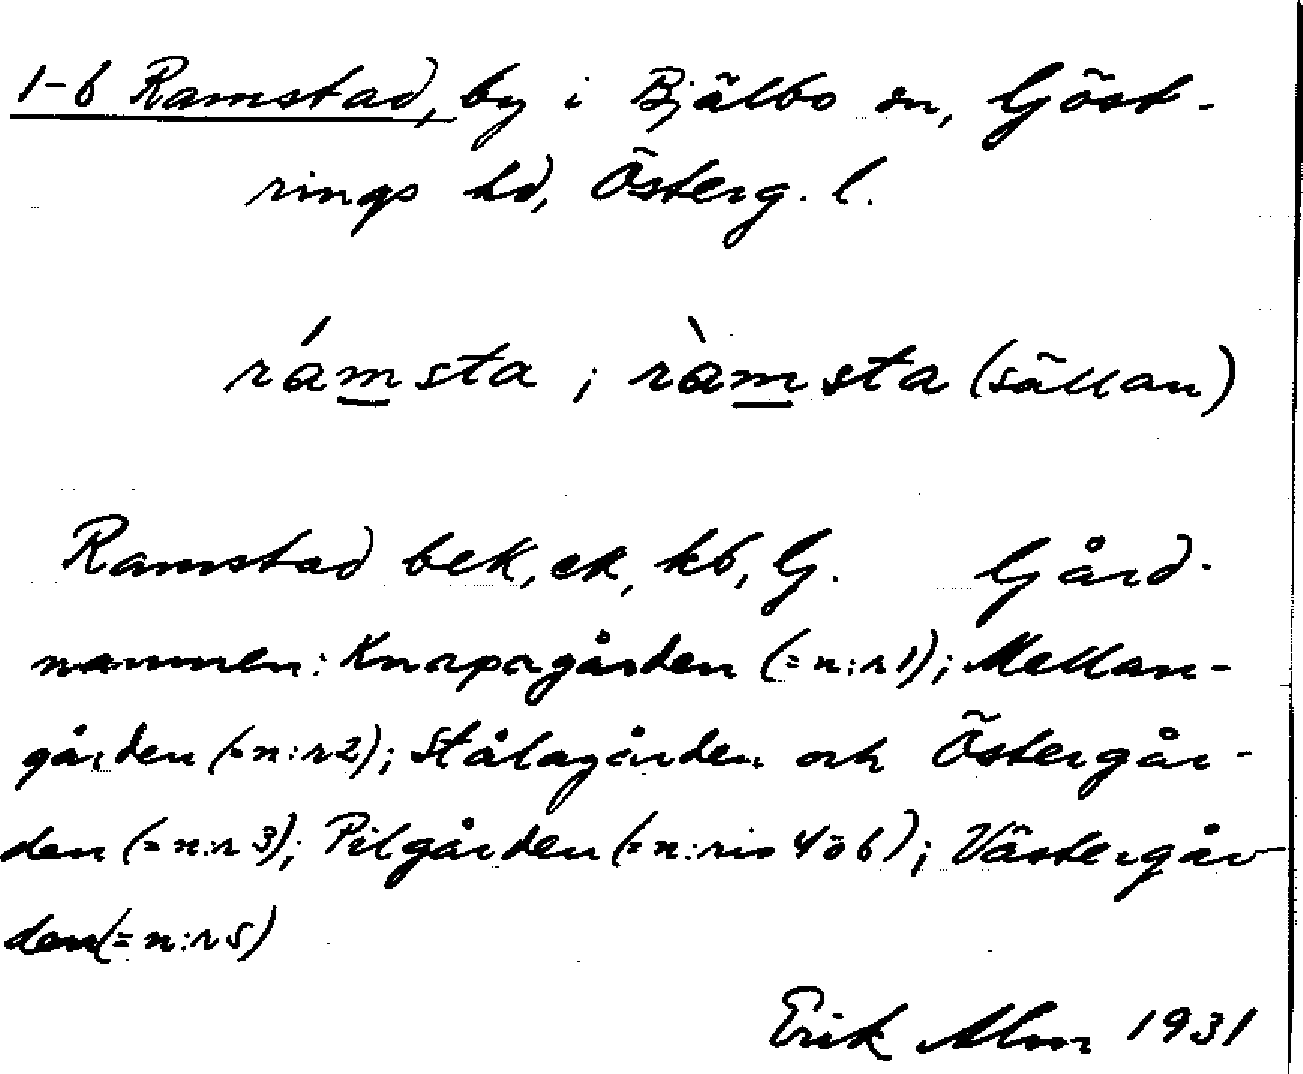 1-6 Ramstad, by i Bjälbo sn, Göst-
rings hd, Österg. l.
rámsta ; ràmsta (sällan)
Ramstad bek, ek, kb, G. Gård-
namnen: Knapagården (=n:r1); Mellan-
gården (=n:r2); Stålagården och Östergår-
den (=n:r 3); Pilgården (=n:ris 4 o 6); Västergår-
den (=n:r 5)
Erik Alm 1931